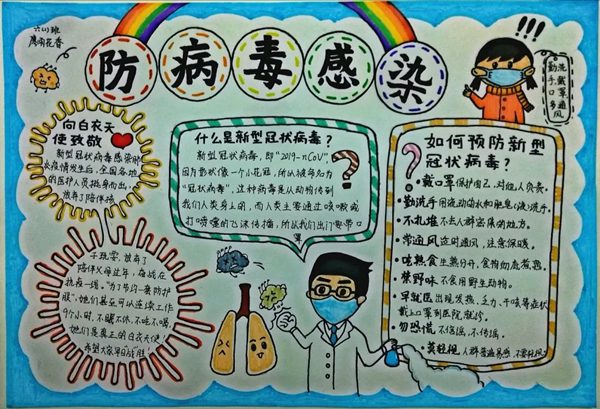 六(1)班
防病毒感染
勤洗手
戴口罩
多通风
向白衣天
使致敬
新型冠状病毒感染肺
炎疫情发生后,全国各地
的医护人员挺身而出,
放弃了陪伴孩
子玩耍,放弃了
陪伴父母过年,奋战在
抗疫一线。"为了节约一套防护
服",她们甚至可以连续工作
9个小时,不眠不休、不吃不喝,
她们是真正的白衣天使!
希望大家早日战"胜!
什么是新型冠状病毒?
新型冠状病毒,即"2019-nCoV",
因为形状像一个小花冠,所以被命名为
"冠状病毒",这种病毒是从动物传到
我们人类身上的,而人类主要通过咳嗽或
打喷嚏的飞沫传播,所以我们出门要带口
罩
如何预防新型
冠状病毒?
戴口罩保护自己,对他人负责。
勤洗手用流动的水和肥皂(液)洗手。
不扎堆不去人群密集的地方。
常通风适时通风,注意保暖。
吃熟食生熟分开,食物彻底煮熟。
禁野味不食用野生动物。
早就医出现发热、乏力、干咳等症状
戴上口罩到医院就诊。
勿恐慌不信谣、不传谣。
莫轻视人群普遍易感,不要轻视